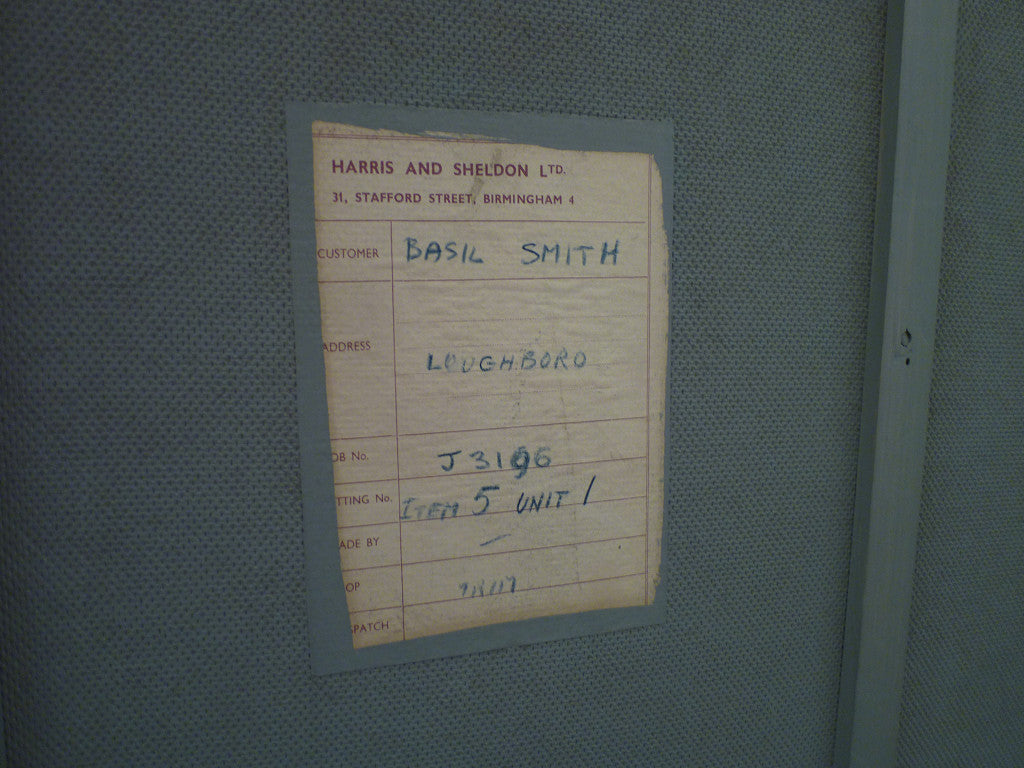 HARRIS AND SHELDON LTD.
31, STAFFORD STREET, BIRMINGHAM 4
CUSTOMER BASIL SMITH
ADDRESS LOUGHBORO
OB No. J3196
TTING No. ITEM 5 UNIT 1
ADE BY —
OP
SPATCH